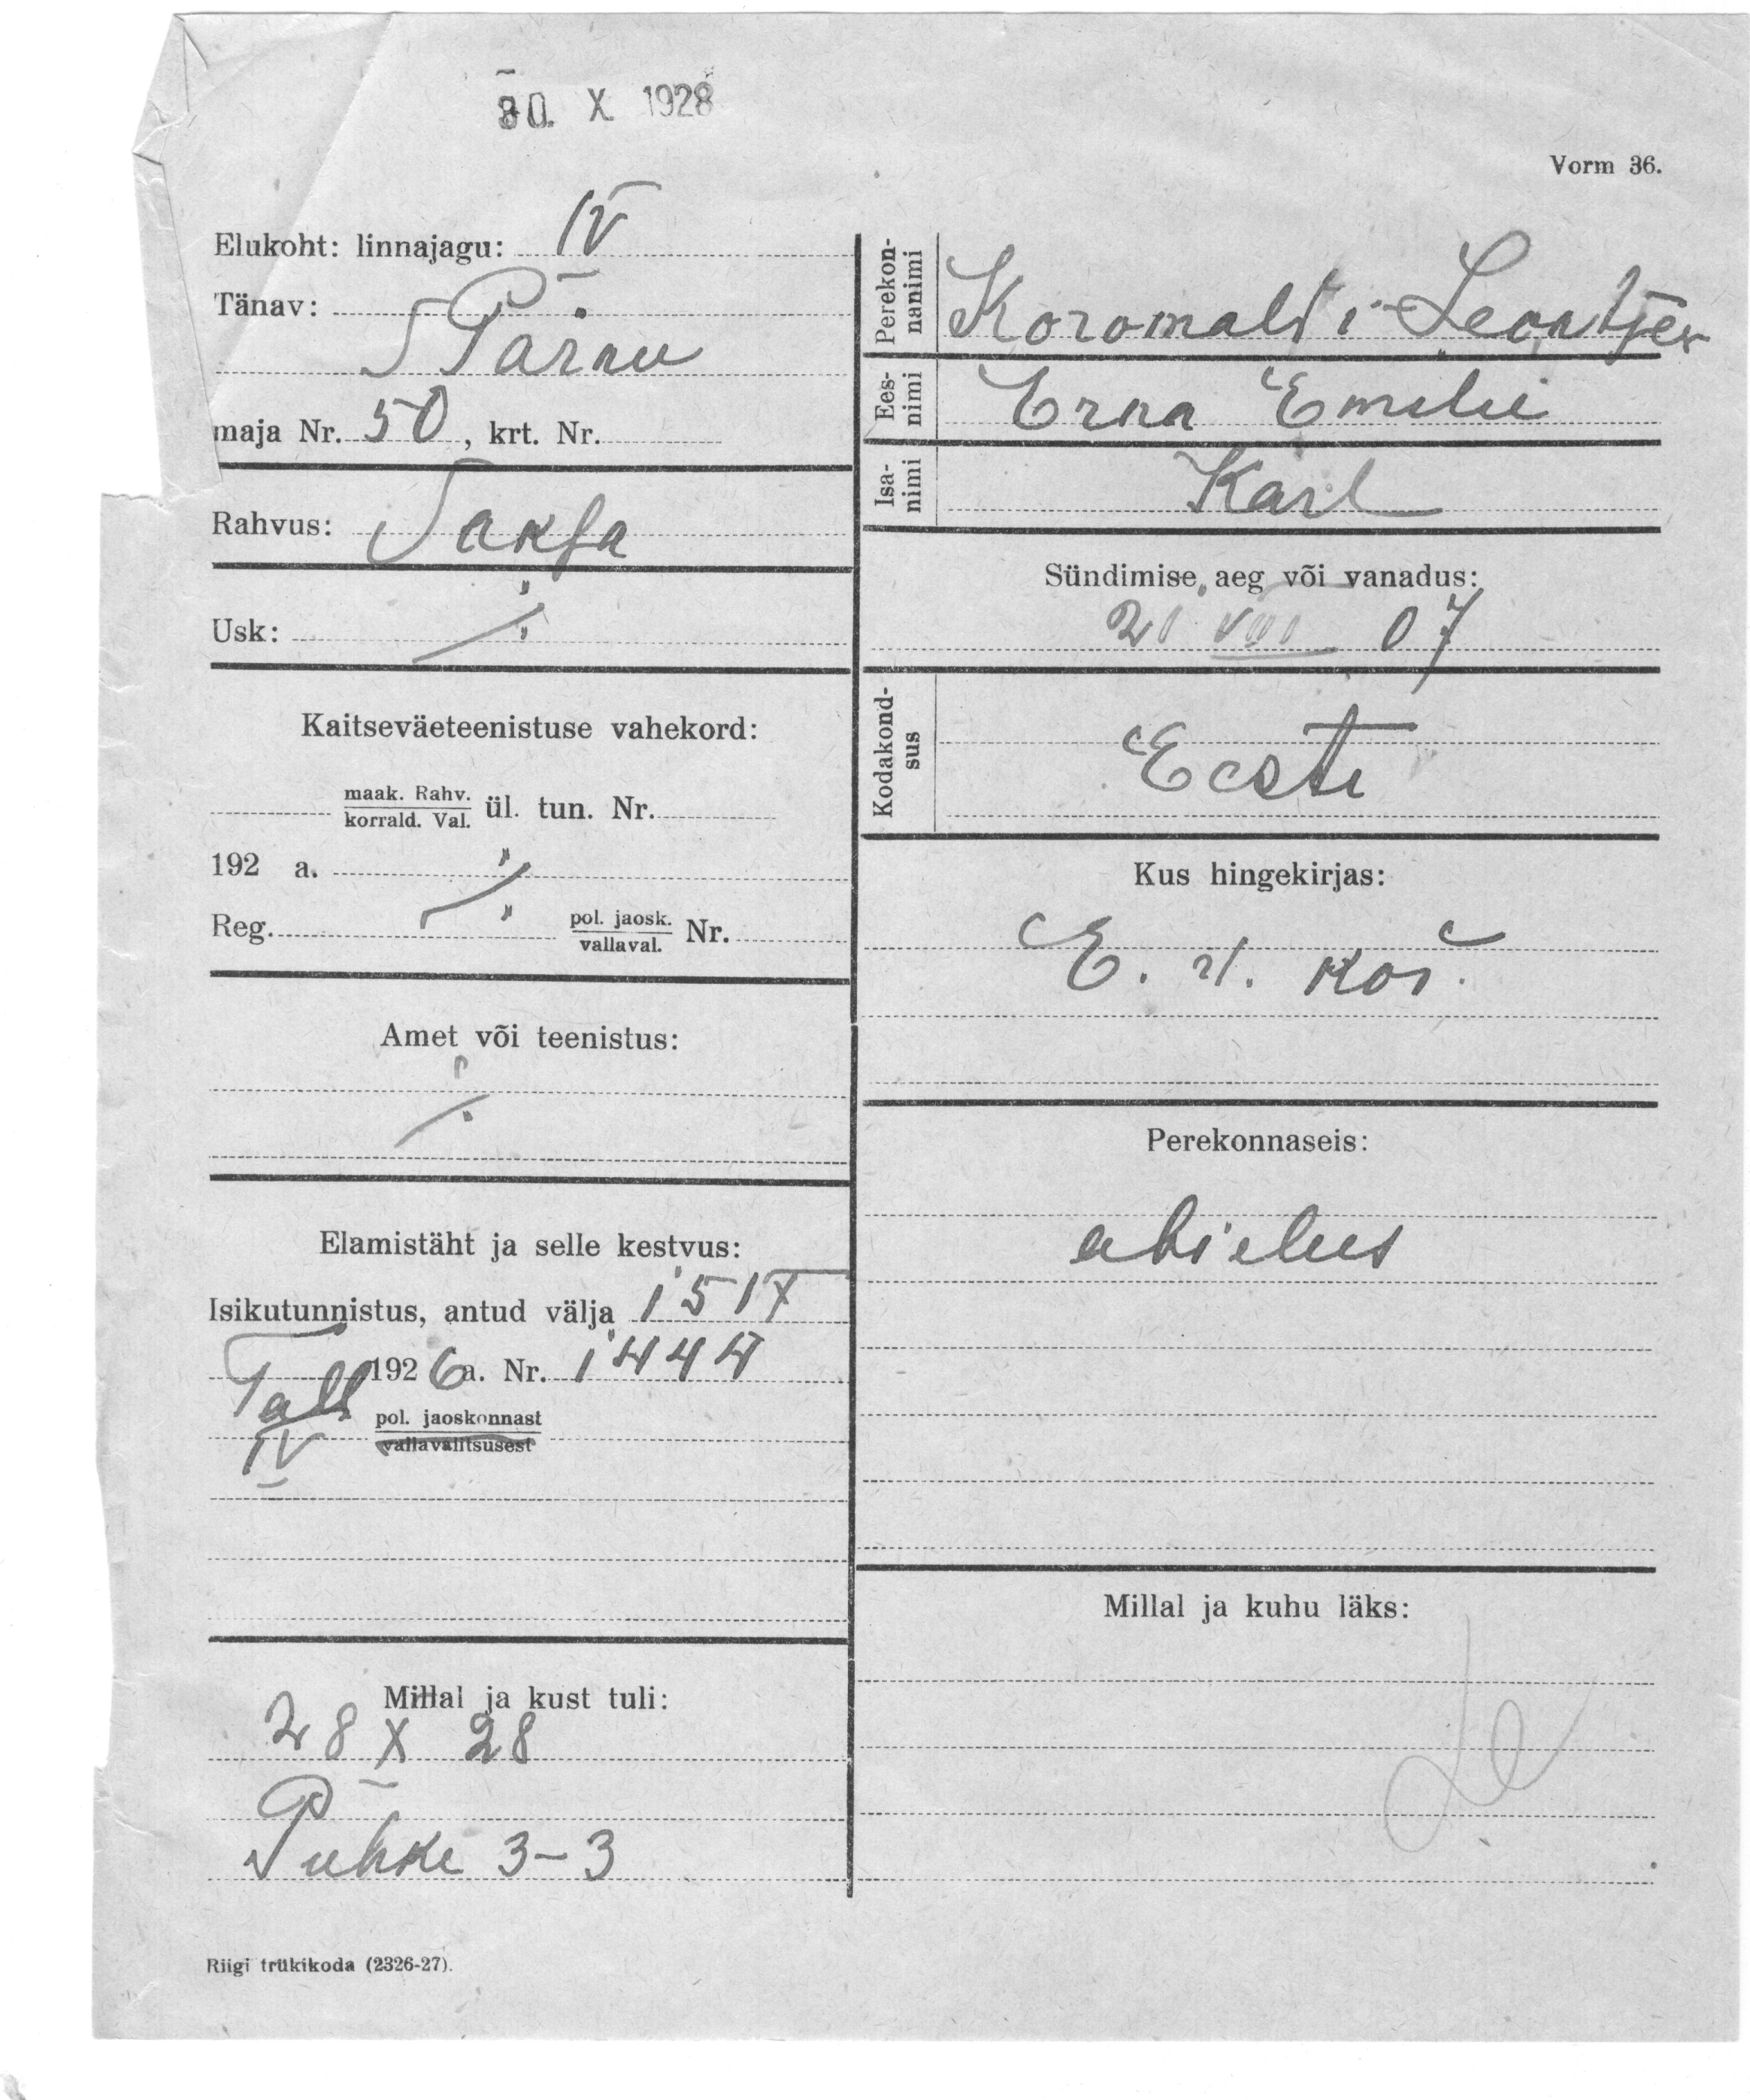 30. X 1928
Vorm 36.
Elukoht: linnajagu: IV
Tänav:
S Pärnu
maja Nr. 50, krt. Nr.
Rahvus: Saksa
Usk:
Kaitseväeteenistuse vahekord:
maak. Rahv.
korrald. Val. ül. tun. Nr.
192 a.
Reg. pol. jaosk. Nr.
vallaval.
Amet või teenistus:
Elamistäht ja selle kestvus:
Isikutunnistus, antud välja 15 IX
Tall 1926 a. Nr. 1444
IV pol. jaoskonnast
vallavalitsusest
Millal ja kust tuli:
28 X 28
Puhke 3-3
Riigi trükikoda (2326-27).
Perekon-
nanimi
Koromaldi-Leontjev
Ees-
nimi
Erna Emilie
Isa-
nimi
Karl
Sündimise aeg või vanadus:
21 VIII 07
Kodakond-
sus
Eesti
Kus hingekirjas:
E. v. kor.
Perekonnaseis:
abielus
Millal ja kuhu läks: